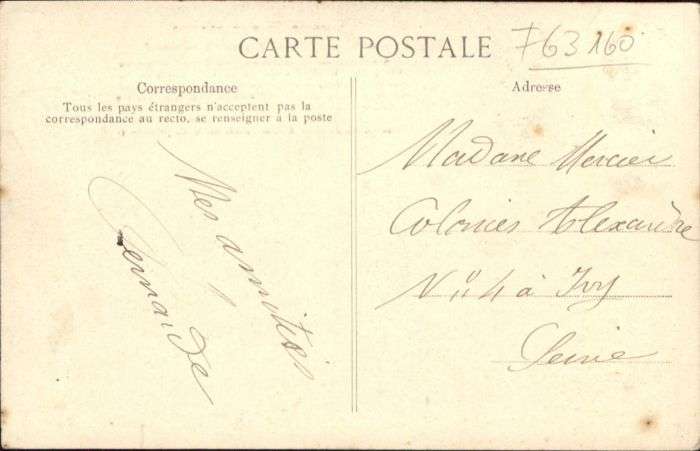 CARTE POSTALE
763160
Correspondance
Tous les pays étrangers n'acceptent pas la
correspondance au recto, se renseigner à la poste
Adresse
Mes amitiés
Fernande
Madame Mercier
Colonies Alexandre
N° 4 à Ivry
Seine